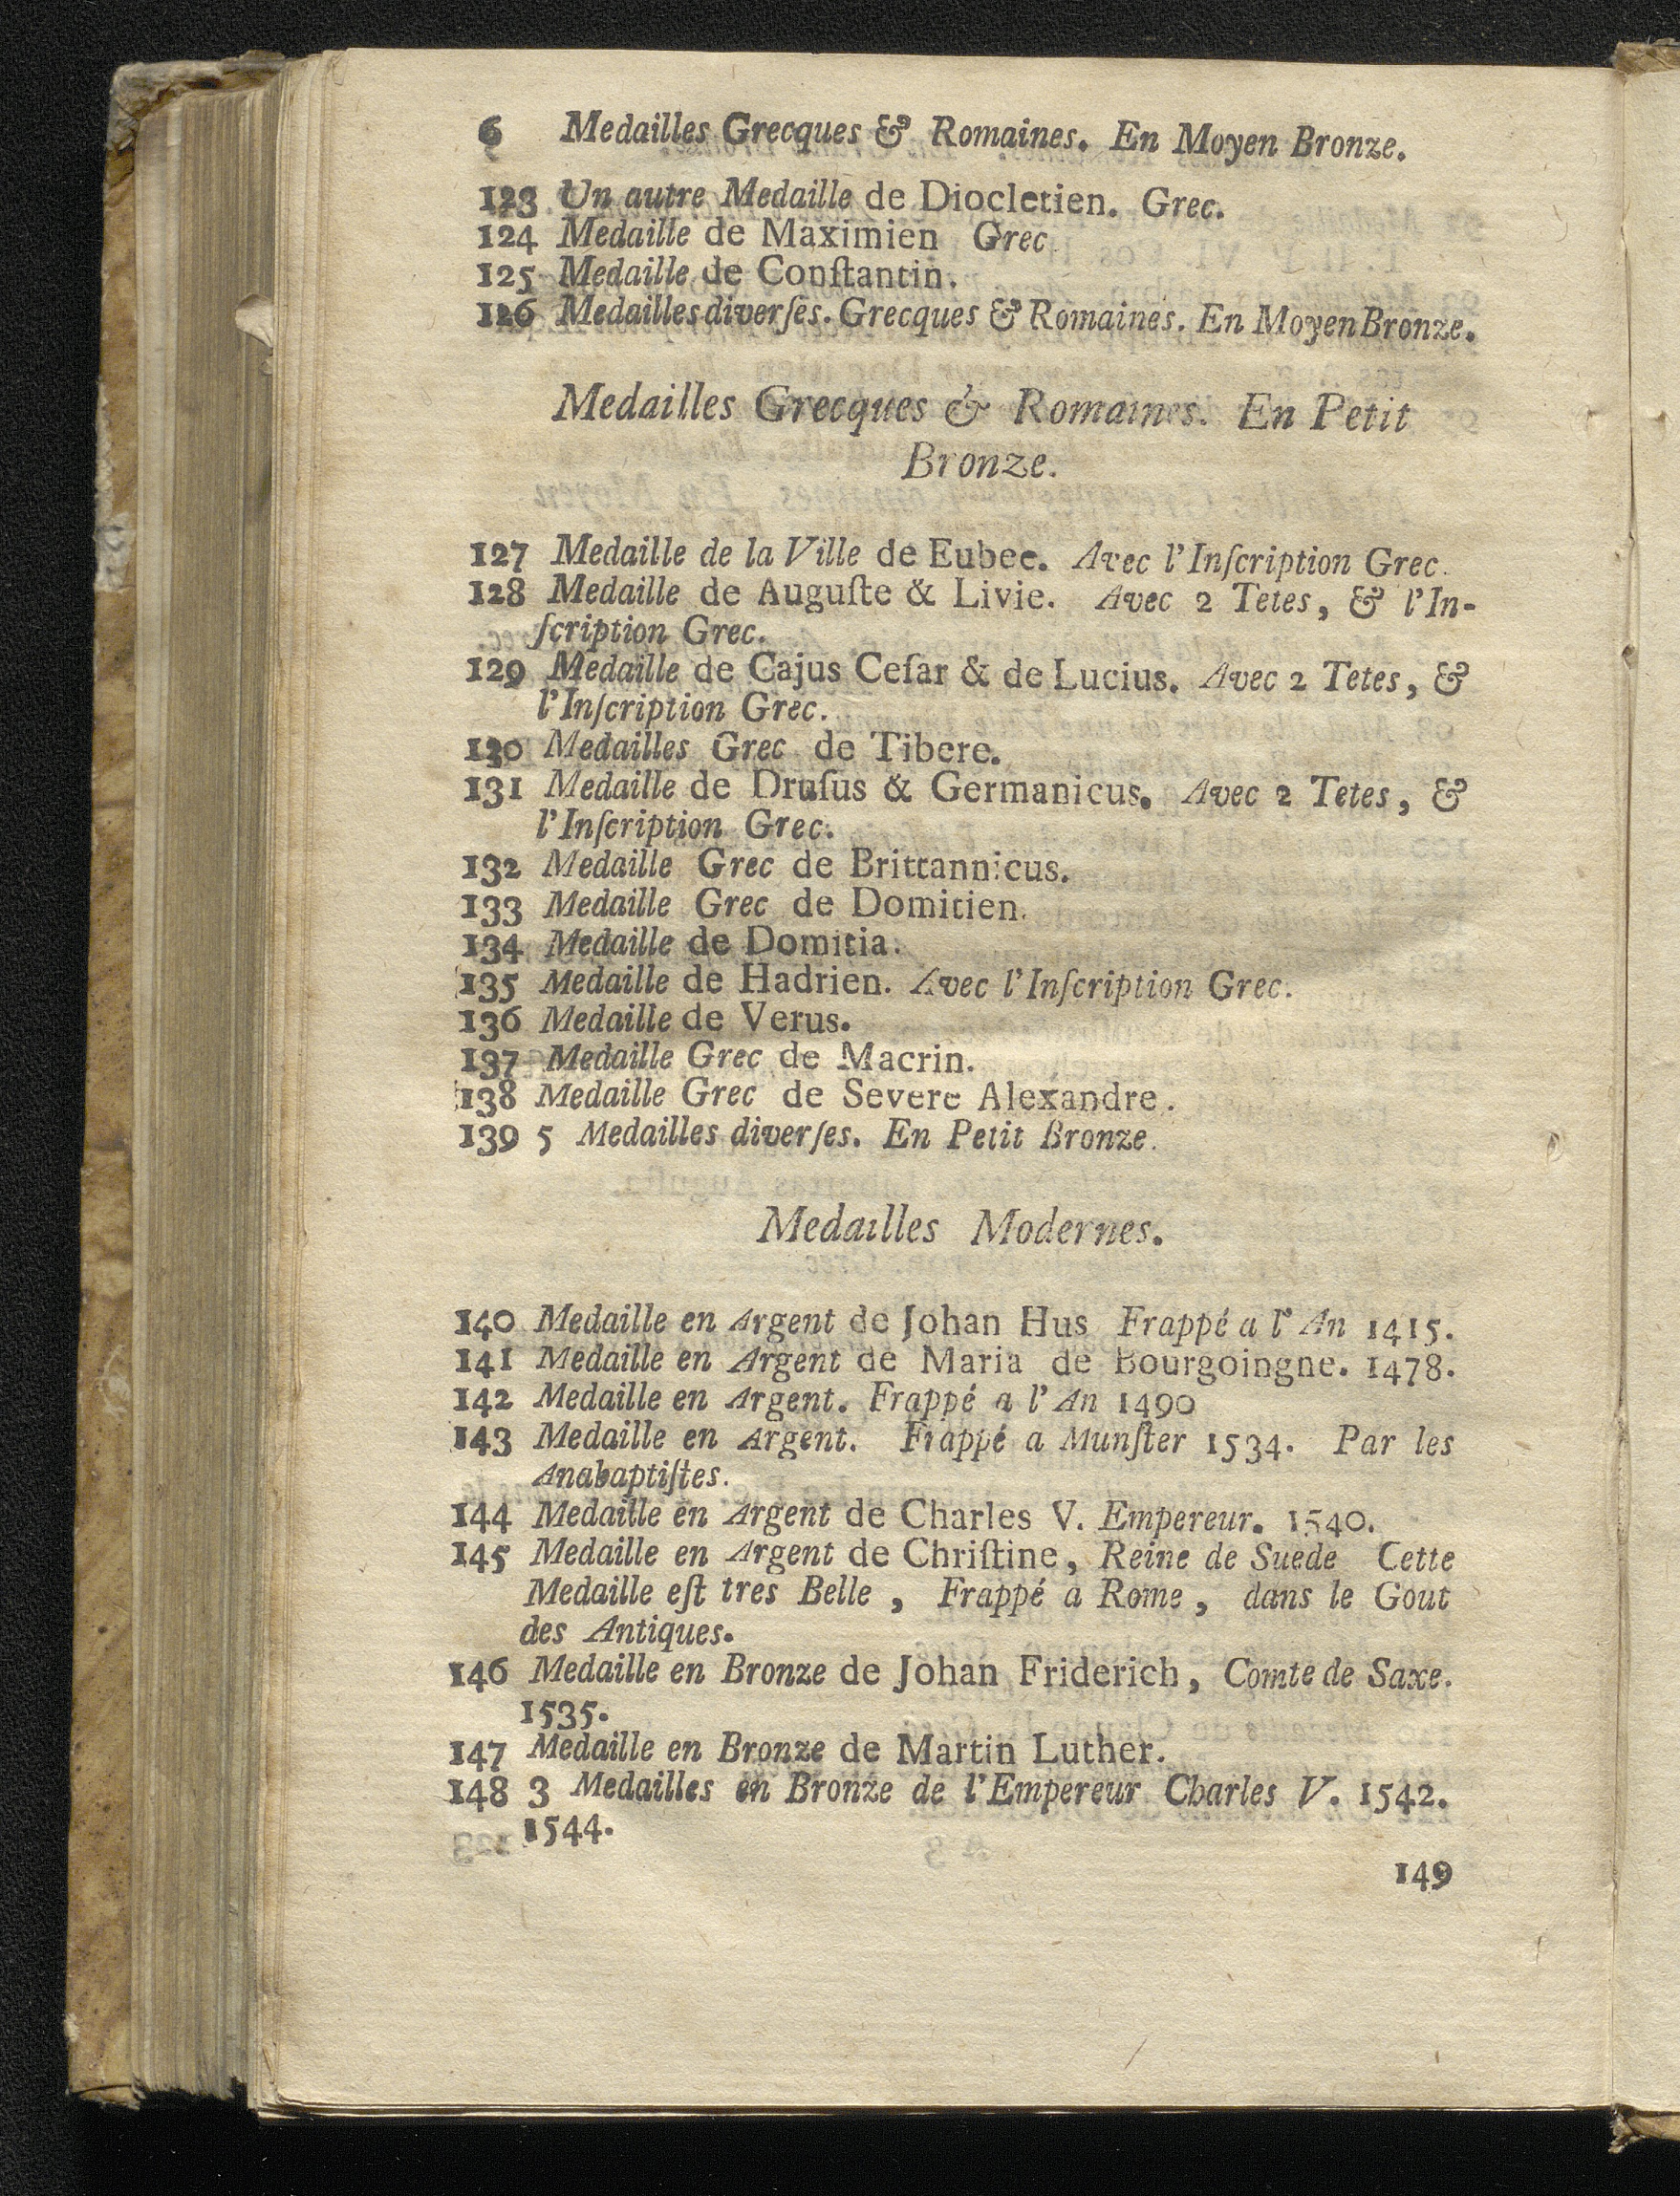 6 Medailles Grecques & Romaines. En Moyen Bronze.
123 Un autre Medaille de Diocletien. Grec.
124 Medaille de Maximien Grec
125 Medaille de Conſtantin.
126 Medailles diverſes. Grecques & Romaines. En Moyen Bronze.
Medailles Grecques & Romaines. En Petit
Bronze.
127 Medaille de la Ville de Eubee. Avec l'Inſcription Grec.
128 Medaille de Auguſte & Livie. Avec 2 Tetes, & l'In-
ſcription Grec.
129 Medaille de Cajus Ceſar & de Lucius. Avec 2 Tetes, &
l'Inſcription Grec.
130 Medailles Grec de Tibere.
131 Medaille de Druſus & Germanicus. Avec 2 Tetes, &
l'Inſcription Grec.
132 Medaille Grec de Brittannicus.
133 Medaille Grec de Domitien.
134 Medaille de Domitia.
135 Medaille de Hadrien. Avec l'Inſcription Grec.
136 Medaille de Verus.
137 Medaille Grec de Macrin.
138 Medaille Grec de Severe Alexandre.
139 5 Medailles diverſes. En Petit Bronze.
Medailles Modernes.
140 Medaille en Argent de Johan Hus Frappé a l'An 1415.
141 Medaille en Argent de Maria de Bourgoingne. 1478.
142 Medaille en Argent. Frappé a l'An 1490
143 Medaille en Argent. Frappé a Munſter 1534. Par les
Anabaptiſtes.
144 Medaille en Argent de Charles V. Empereur. 1540.
145 Medaille en Argent de Chriſtine, Reine de Suede Cette
Medaille eſt tres Belle, Frappé a Rome, dans le Gout
des Antiques.
146 Medaille en Bronze de Johan Friderich, Comte de Saxe.
1535.
147 Medaille en Bronze de Martin Luther.
148 3 Medailles en Bronze de l'Empereur Charles V. 1542.
1544.
149